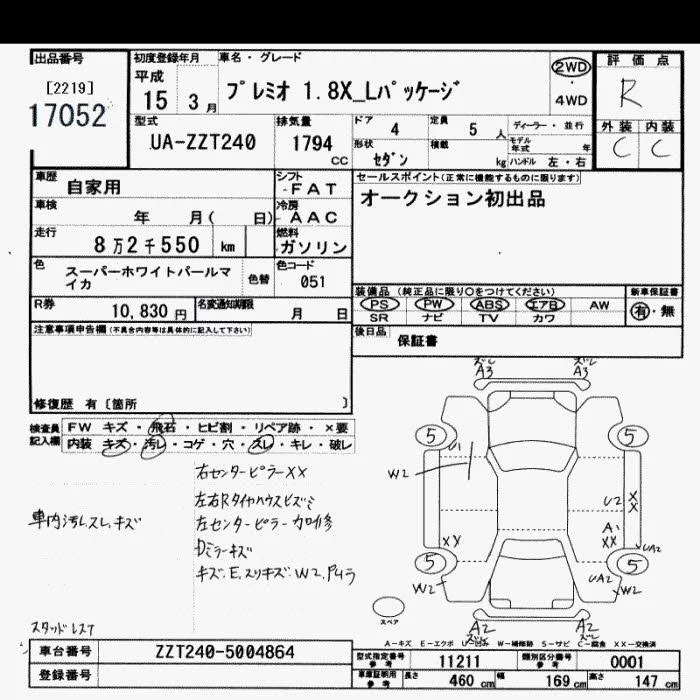 出品番号
[2219]
17052
初度登録年月
平成
15 3月
車名・グレード
プレミオ 1.8X_Lパッケージ
2WD
・
4WD
評価点
R
外装 内装
C C
型式
UA-ZZT240
排気量
1794
cc
ドア 4
定員 5 人
ディーラー・並行
形状 セダン
積載 kg
モデル年式 年
ハンドル 左・右
車歴 自家用
シフト
-FAT
セールスポイント(正常に機能するものに限ります)
オークション初出品
車検 年 月( 日)
冷房
-AAC
走行 8万2千550 km
燃料
ガソリン
色 スーパーホワイトパールマイカ
色替
色コード
051
装備品 (純正品に限り○をつけてください)
PS PW ABS エアB AW
SR ナビ TV カワ
新車保証書
有・無
R券 10,830 円
名変通知期限 月 日
後日品 保証書
注意事項申告欄(不具合内容等は具体的に記入して下さい)
修復歴 有〔箇所 〕
検査員記入欄
FW キズ・飛石・ヒビ割・リペア跡・×要
内装 キズ・汚レ・コゲ・穴・スレ・キレ・破レ
右センターピラーXX
左右Rタイヤハウスヒズミ
左センターピラー加修
車内汚レスレ、キズ
Dミラーキズ
スタッドレスT
A3 A3
5 5
U1
W2
U2 XX
A1
XX XX
UA2
5 5
W2 UA2 W2
スペア
A2 A2
A-キズ E-エクボ U-凹み W-補修跡 S-サビ C-腐食 XX-交換済
車台番号 ZZT240-5004864
登録番号
型式指定番号 参考 11211
類別区分番号 参考 0001
車庫証明用 参考 長さ 460 cm 幅 169 cm 高さ 147 cm